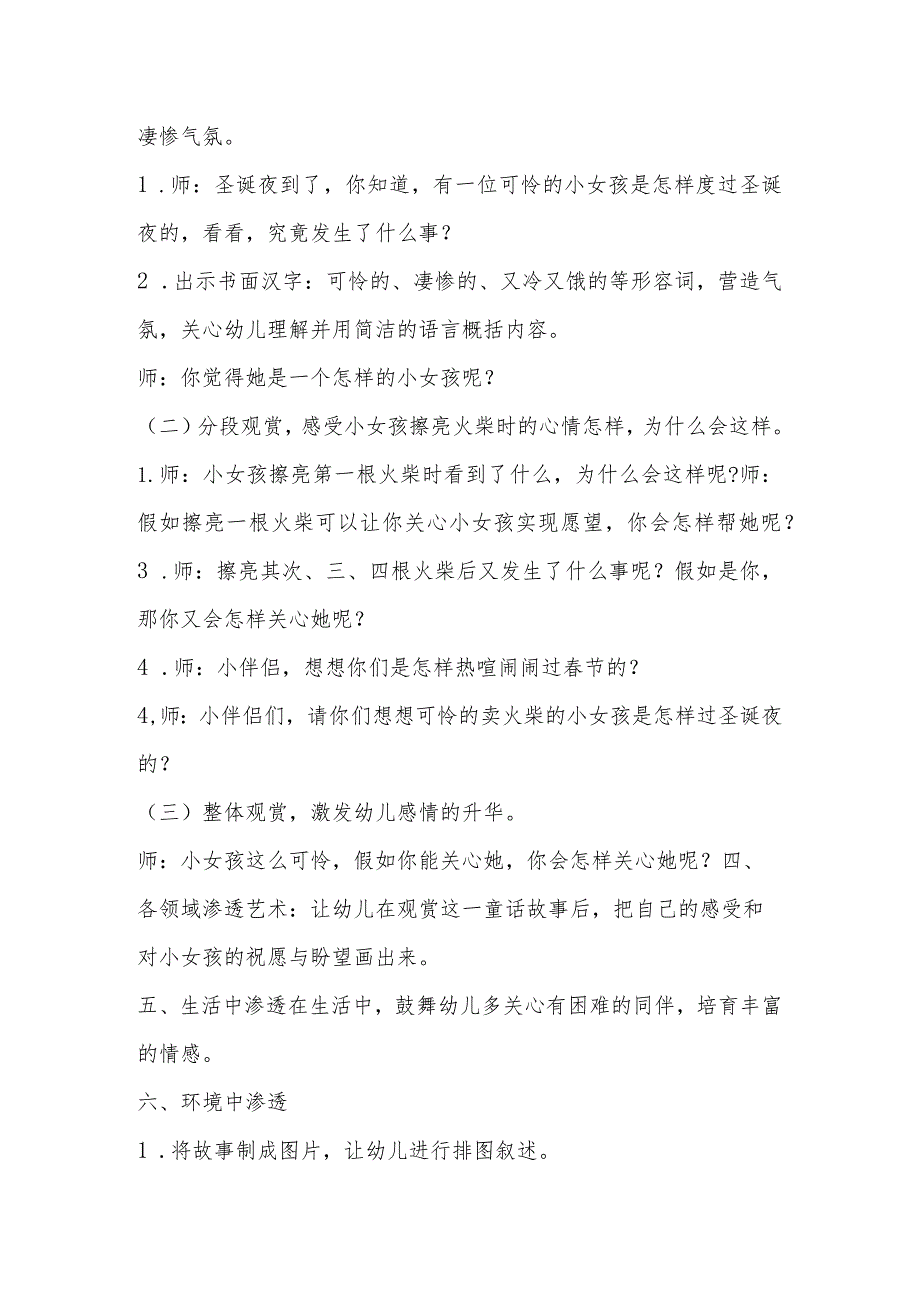 凄惨气氛。
1 .师：圣诞夜到了，你知道，有一位可怜的小女孩是怎样度过圣诞
夜的，看看，究竟发生了什么事？
2 .出示书面汉字：可怜的、凄惨的、又冷又饿的等形容词，营造气
氛，关心幼儿理解并用简洁的语言概括内容。
师：你觉得她是一个怎样的小女孩呢？
（二）分段观赏，感受小女孩擦亮火柴时的心情怎样，为什么会这样。
1.师：小女孩擦亮第一根火柴时看到了什么，为什么会这样呢?师：
假如擦亮一根火柴可以让你关心小女孩实现愿望，你会怎样帮她呢？
3 .师：擦亮其次、三、四根火柴后又发生了什么事呢？假如是你，
那你又会怎样关心她呢？
4 .师：小伴侣，想想你们是怎样热喧闹闹过春节的？
4,师：小伴侣们，请你们想想可怜的卖火柴的小女孩是怎样过圣诞夜
的？
（三）整体观赏，激发幼儿感情的升华。
师：小女孩这么可怜，假如你能关心她，你会怎样关心她呢？四、
各领域渗透艺术：让幼儿在观赏这一童话故事后，把自己的感受和
对小女孩的祝愿与盼望画出来。
五、生活中渗透在生活中，鼓舞幼儿多关心有困难的同伴，培育丰富
的情感。
六、环境中渗透
1 .将故事制成图片，让幼儿进行排图叙述。